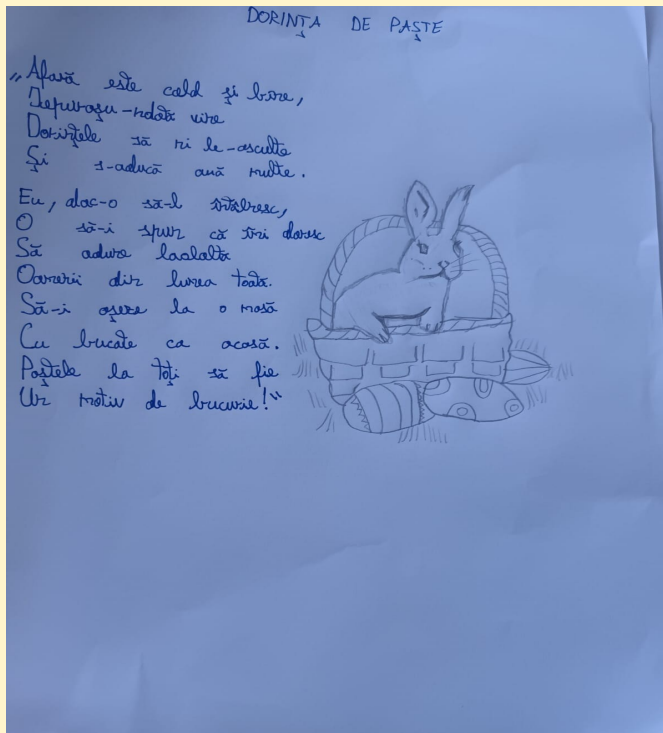 DORINȚA DE PAȘTE
„Afară este cald și bine,
Iepurașu-ndată vine
Dorințele să ni le-asculte
Și s-aducă ouă multe.
Eu, dac-o să-l întâlnesc,
O să-i spun că îmi doresc
Să adune laolaltă
Oamenii din lumea toată.
Să-i așeze la o masă
Cu bucate ca acasă.
Paștele la toți să fie
Un motiv de bucurie!"